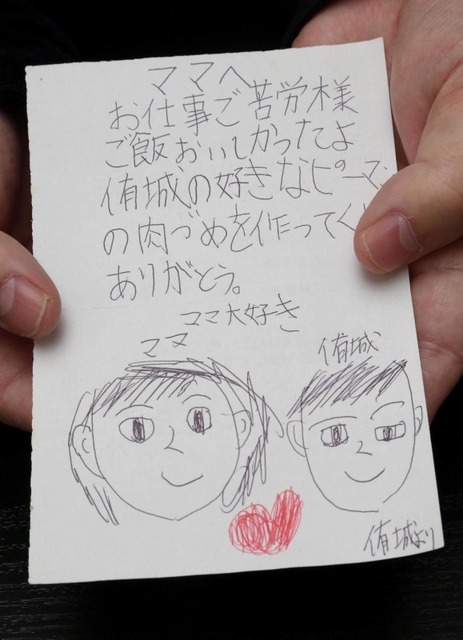 ママへ
お仕事ご苦労様
ご飯おいしかったよ
侑城の好きなピーマン
の肉づめを作ってく
ありがとう。
ママ大好き
ママ
侑城
侑城より